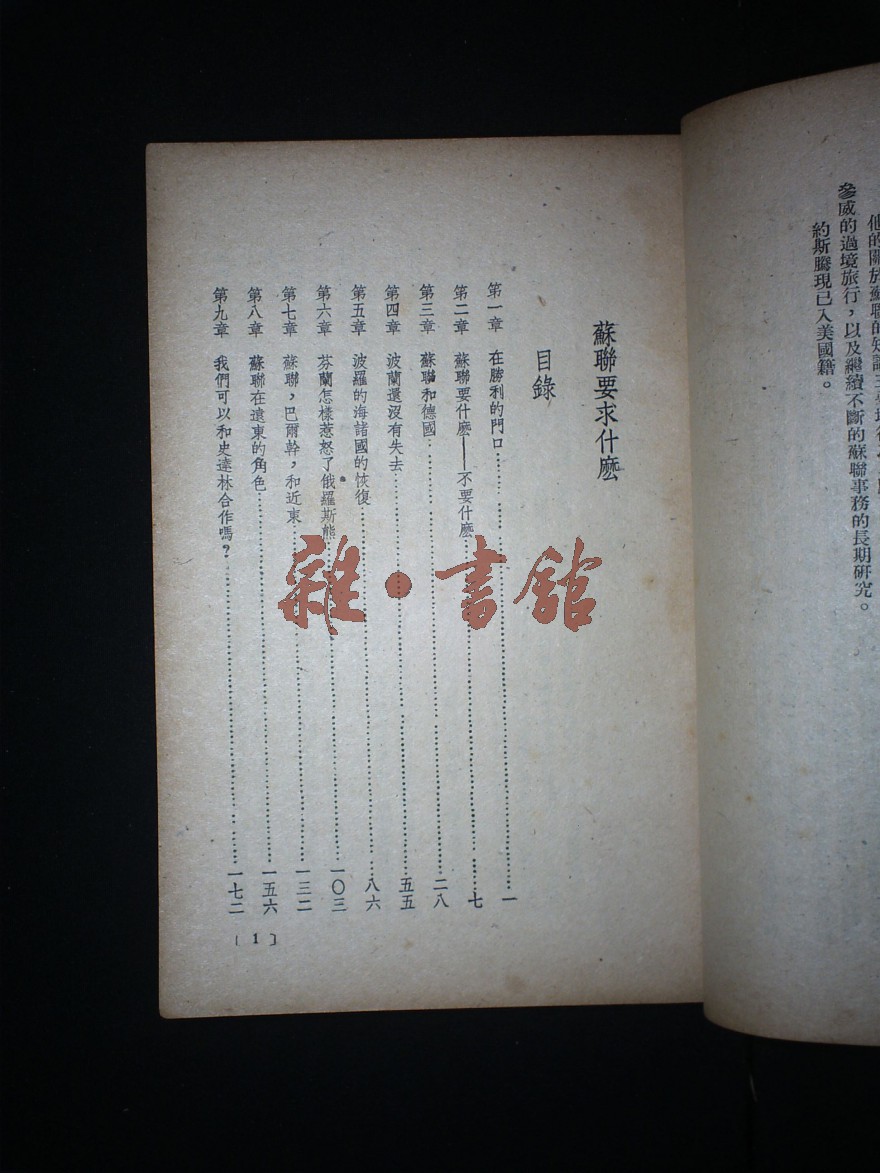 他的關於蘇聯的知識主要
參威的過境旅行，以及繼續不斷的蘇聯事務的長期研究。
約斯騰現已入美國籍。
蘇聯要求什麽
目錄
第一章 在勝利的門口……一
第二章 蘇聯要什麽——不要什麽……七
第三章 蘇聯和德國……二八
第四章 波蘭還沒有失去……五五
第五章 波羅的海諸國的恢復……八六
第六章 芬蘭怎樣惹怒了俄羅斯熊……一〇三
第七章 蘇聯，巴爾幹，和近東……一三二
第八章 蘇聯在遠東的角色……一五六
第九章 我們可以和史達林合作嗎？……一七二
［1］
雜·書館